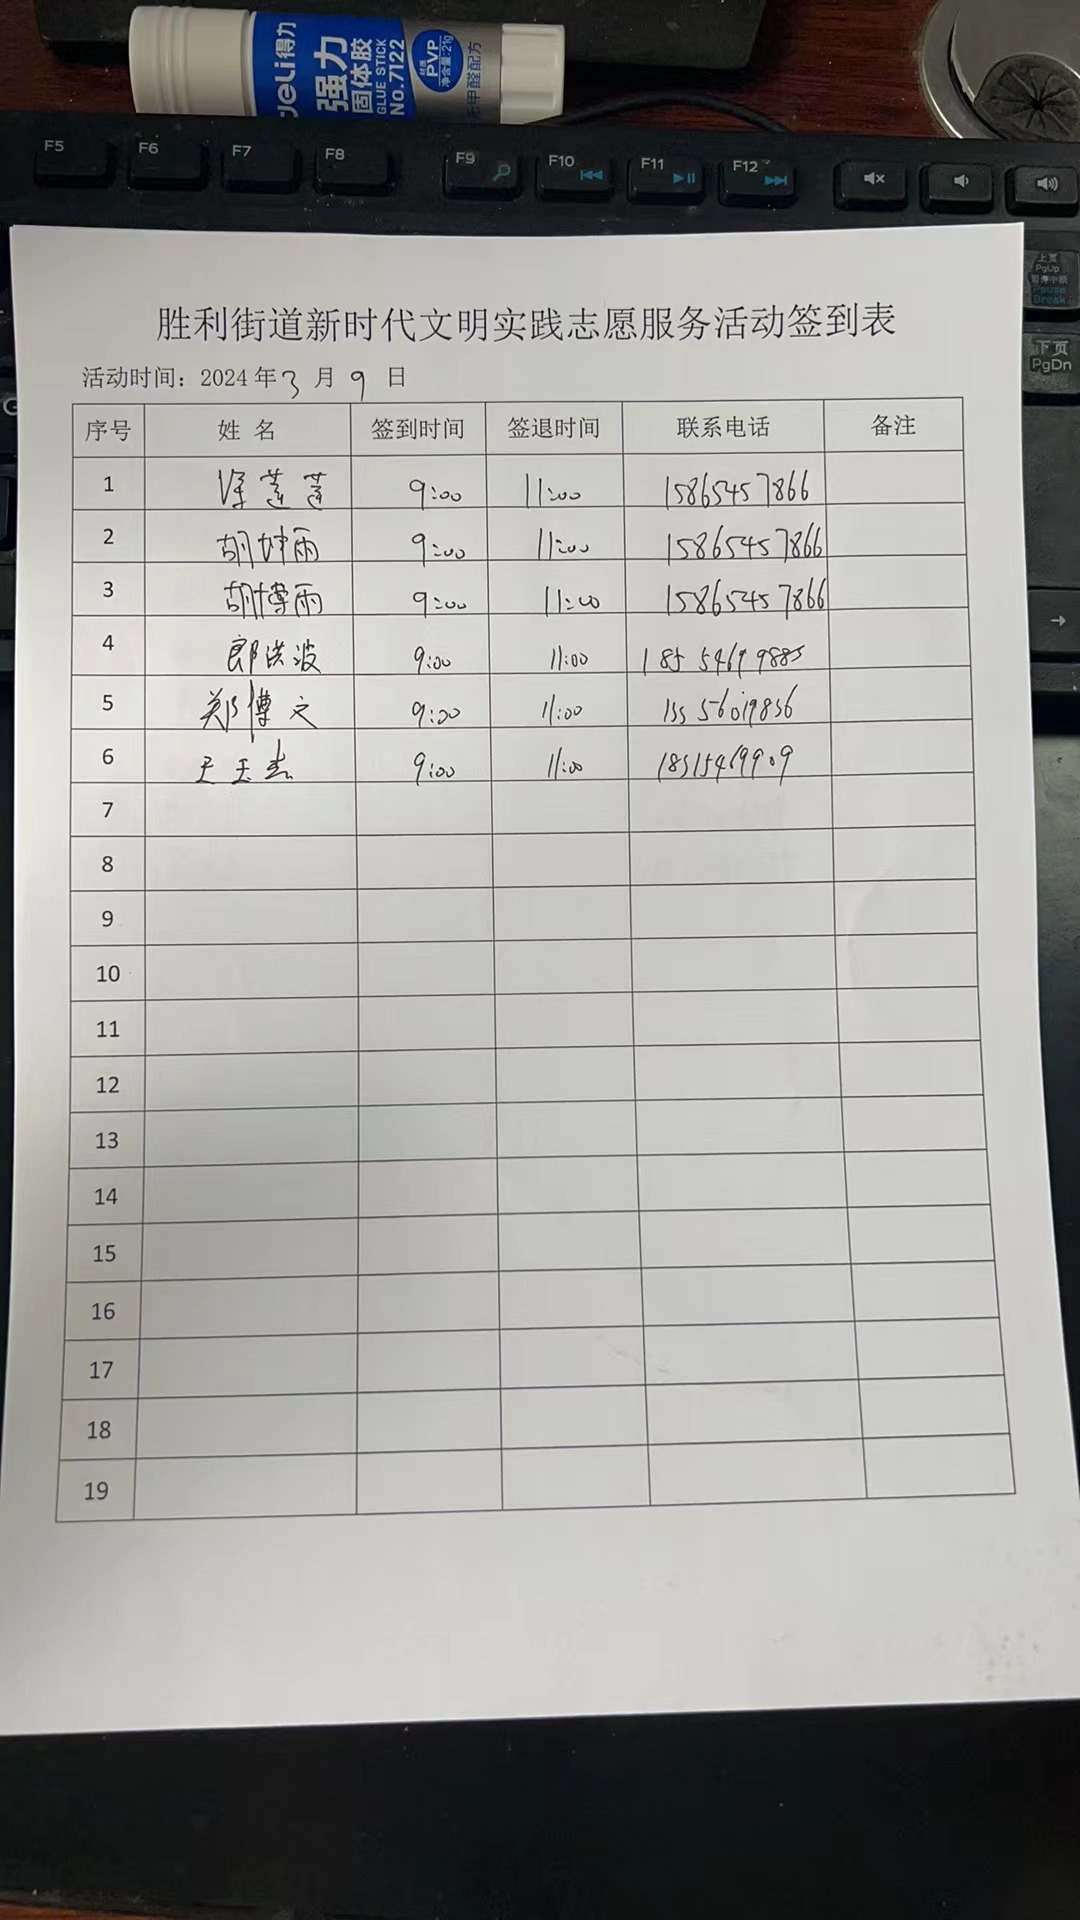 deli得力
强力
固体胶
GLUE STICK
No.7122
材质
PVP
净含量:21g
甲醛配方
F5 F6 F7 F8 F9 F10 F11 F12
上页
PgUp
暂停中断
Pause
Break
下页
PgDn
胜利街道新时代文明实践志愿服务活动签到表
活动时间：2024年3月9日
序号 姓名 签到时间 签退时间 联系电话 备注
1 莲莲 9:00 11:00 15865457866
2 胡坤雨 9:00 11:00 15865457866
3 胡博雨 9:00 11:00 15865457866
4 郎洪波 9:00 11:00
5 郑博文 9:00 11:00
6 王玉杰 9:00 11:00 18515469909
7
8
9
10
11
12
13
14
15
16
17
18
19